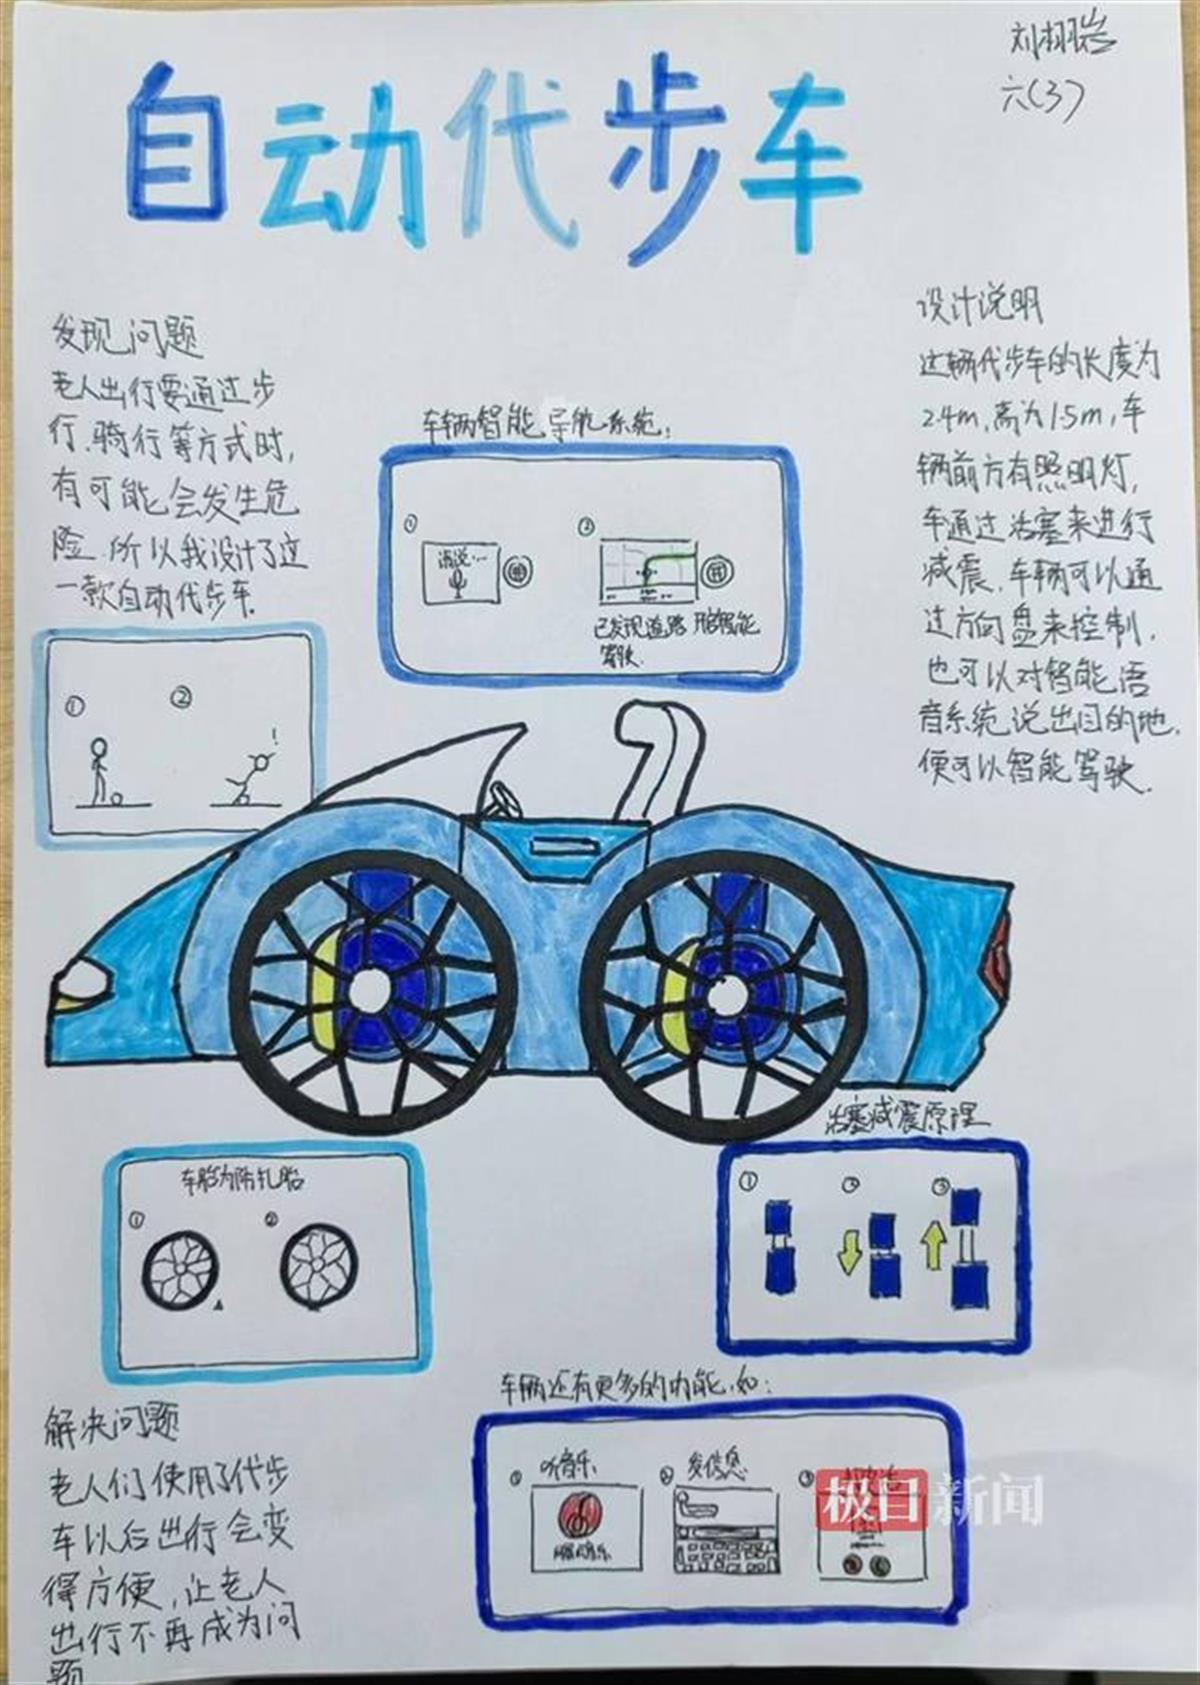 刘栩岩
六(3)
自动代步车
发现问题
老人出行要通过步
行、骑行等方式时,
有可能会发生危
险,所以我设计了这
一款自动代步车.
①
②
!
车辆智能导航系统:
①
请说...
②
开
已发现道路 开启智能
驾驶.
设计说明
这辆代步车的长度为
2.4m,高为1.5m,车
辆前方有照明灯,
车通过活塞来进行
减震.车辆可以通
过方向盘来控制,
也可以对智能语
音系统说出目的地,
便可以智能驾驶.
车胎为防扎胎
①
②
活塞减震原理
①
②
③
解决问题
老人们使用了代步
车以后出行会变
得方便,让老人
出行不再成为问
题
车辆还有更多的功能,如:
①
听音乐
②
发信息
③
极目新闻